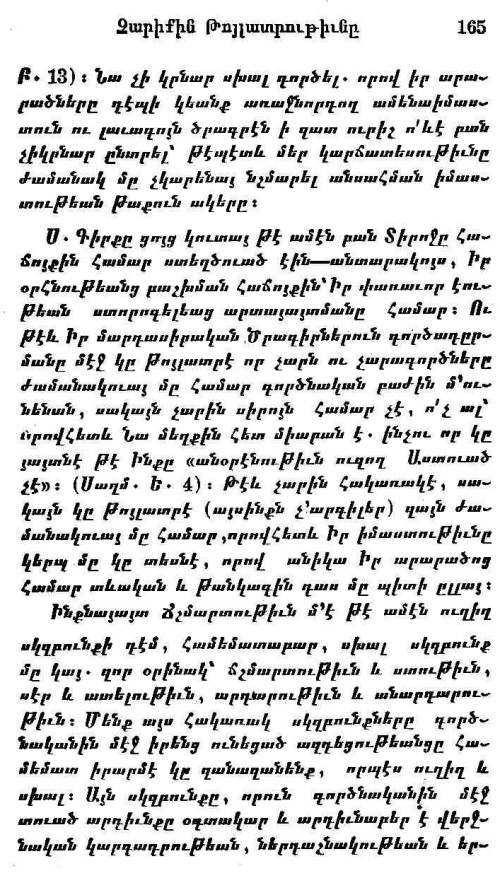 Չարիքին Թոյլատրութիւնը 165
Բ. 13)։ Նա չի կրնար սխալ գործել. որով իր արա-
րածները դէպի կեանք առաջնորդող ամենաիմաս-
տուն ու լաւագոյն ծրագրէն ի զատ ուրիշ ո՛ևէ բան
չիկրնար ընտրել՝ թէպէտև մեր կարճատեսութիւնը
ժամանակ մը չկարենայ նշմարել անսահման իմաս-
տութեան թաքուն ակերը։
Ս. Գիրքը ցոյց կուտայ թէ ամէն բան Տիրոջը Հա-
ճոյքին Համար ստեղծուած էին—անտարակոյս, Իր
օրՀնութեանց բաշխման Հաճոյքին՝ Իր փառաւոր էու-
թեան ստորոգելեաց արտայայտմանը Համար։ Ու
թէև Իր մարդասիրական Ծրագիրներուն գործադըր-
մանը մէջ կը թոյլատրէ որ չարն ու չարագործները
ժամանակուայ մը Համար գործնական բաժին մ՚ու-
նենան, սակայն չարին սիրոյն Համար չէ, ո՛չ ալ՝
որովՀետև Նա մեղքին Հետ միաբան է. ինչու որ կը
յայտնէ թէ Ինքը «անօրէնութիւն ուզող Աստուած
չէ»։ (Սաղմ. Ե. 4)։ Թէև չարին Հակառակէ, սա-
կայն կը թոյլատրէ (այսինքն չ՚արգիլեր) զայն ժա-
մանակուայ մը Համար, որովՀետև Իր իմաստութիւնը
կերպ մը կը տեսնէ, որով անիկա Իր արարածոց
Համար տևական և թանկագին դաս մը պիտի ըլլայ։
Ինքնայայտ Ճշմարտութիւն մ՚է թէ ամէն ուղիղ
սկզբունքի դէմ, Համեմատաբար, սխալ սկզբունք
մը կայ. զոր օրինակ՝ ճշմարտութիւն և ստութիւն,
սէր և ատելութիւն, արդարութիւն և անարդարու-
թիւն։ Մենք այս Հակառակ սկզբունքները գործ-
նականին մէջ իրենց ունեցած ազդեցութեանցը Հա-
մեմատ իրարմէ կը զանազանենք, որպէս ուղիղ և
սխալ։ Այն սկզբունքը, որուն գործնականին մէջ
տուած արդիւնքը օգտակար և արդիւնաբեր է վերջ-
նական կարգադրութեան, ներդաշնակութեան և եր-